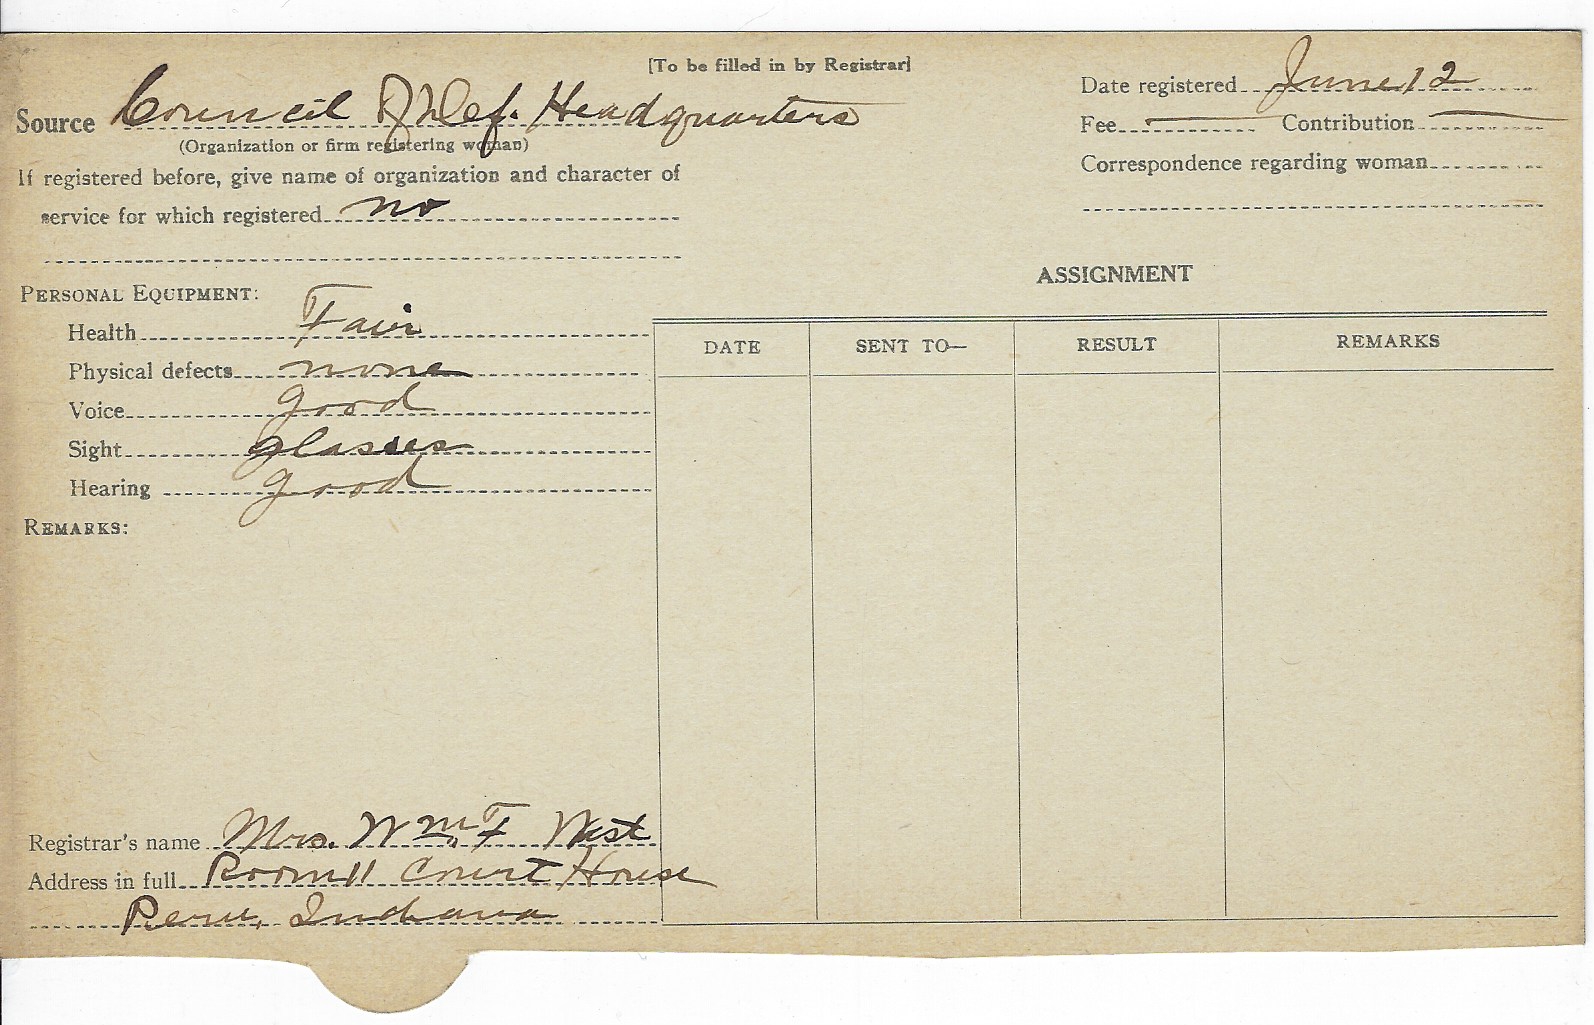 [To be filled in by Registrar]
Source Council of Def. Headquarters
(Organization or firm registering woman)
If registered before, give name of organization and character of
service for which registered no
Date registered June 12
Fee Contribution
Correspondence regarding woman
PERSONAL EQUIPMENT:
Health Fair
Physical defects none
Voice good
Sight glasses
Hearing good
REMARKS:
ASSIGNMENT
DATE SENT TO— RESULT REMARKS
Registrar's name Mrs. Wm. F West
Address in full Room 11 Court House
Peru, Indiana